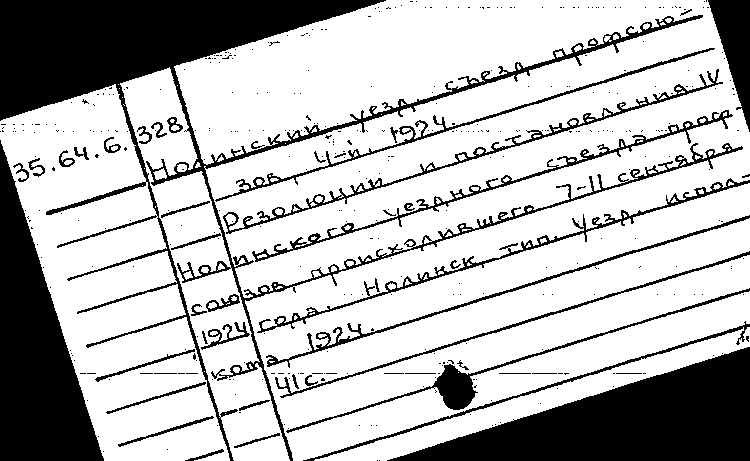 35.64.6. 328.
Нолинский уезд. съезд профсою-
зов, 4-й. 1924.
Резолюции и постановления IV
Нолинского уездного съезда проф-
союзов, происходившего 7-11 сентября
1924 года. Нолинск, тип. Уезд. испол-
кома, 1924.
41 с.